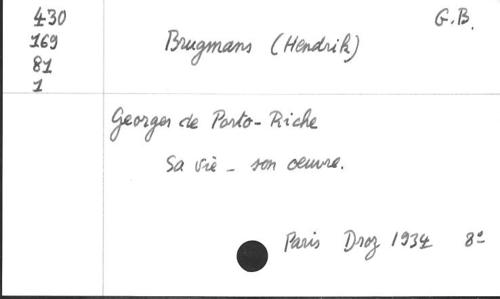 430
G.B.
169
Brugmans (Hendrik)
81
1
Georges de Porto-Riche
Sa vie - son oeuvre.
Paris Droz 1934 8°